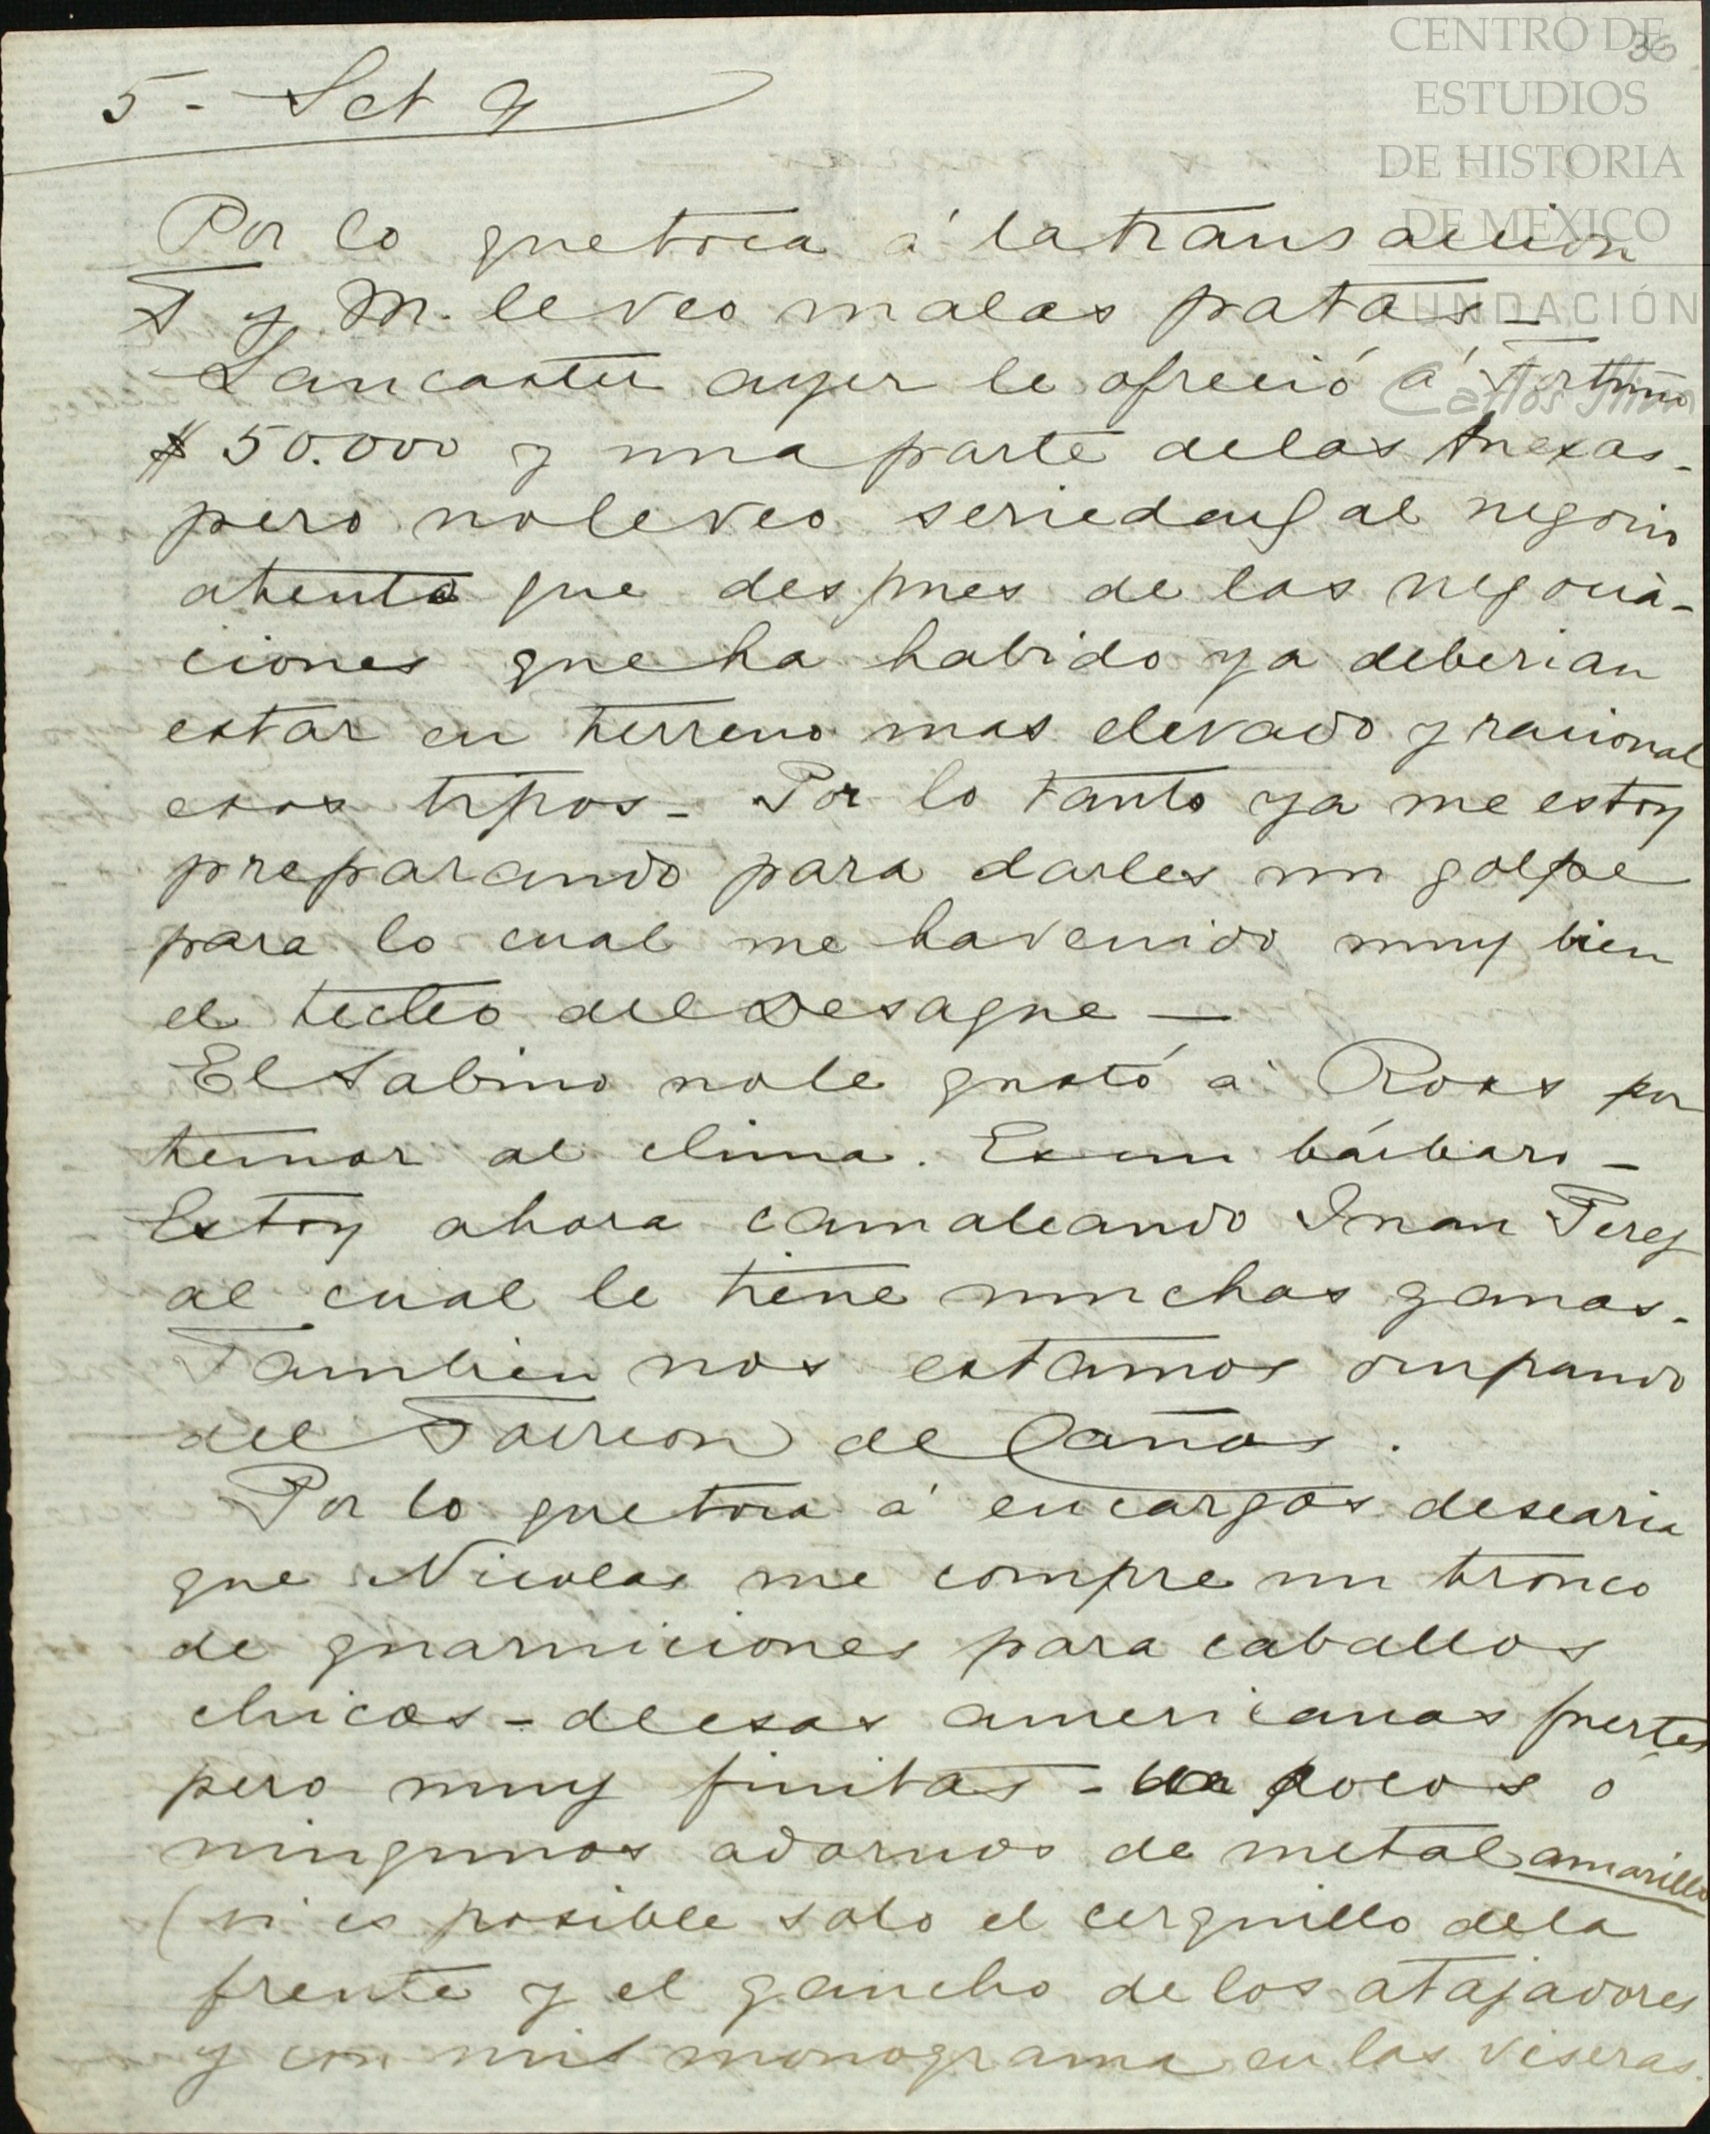 CENTRO DE
ESTUDIOS
DE HISTORIA
DE MÉXICO
FUNDACIÓN
Carlos Slim
36
5 - Set 9
Por lo que toca á la transaccion
T y M. le veo malas patas -
Lancaster ayer le ofreció á Fortuño
$ 50.000 y una parte de las Anexas -
pero no le veo seriedad al negocio
atento que despues de las negocia-
ciones que ha habido ya deberian
estar en terreno mas elevado y racional
esos tipos - Por lo tanto ya me estoy
preparando para darles un golpe
para lo cual me ha venido muy bien
el tecleo del Desague —
El Sabino no le gustó á Ross por
temor al clima. Es un bárbaro -
Estoy ahora camaleando Juan Perez
al cual le tiene muchas ganas -
Tambien nos estamos ocupando
del Torreon de Cañas.
Por lo que toca á encargos desearia
que Nicolas me compre un tronco
de guarniciones para caballos
chicos - de esas americanas fuertes
pero muy finitas - pocos ó
ningunos adornos de metal amarillo
(si es posible solo el cerquillo de la
frente y el gancho de los atajadores
y con mis monograma en las viseras.